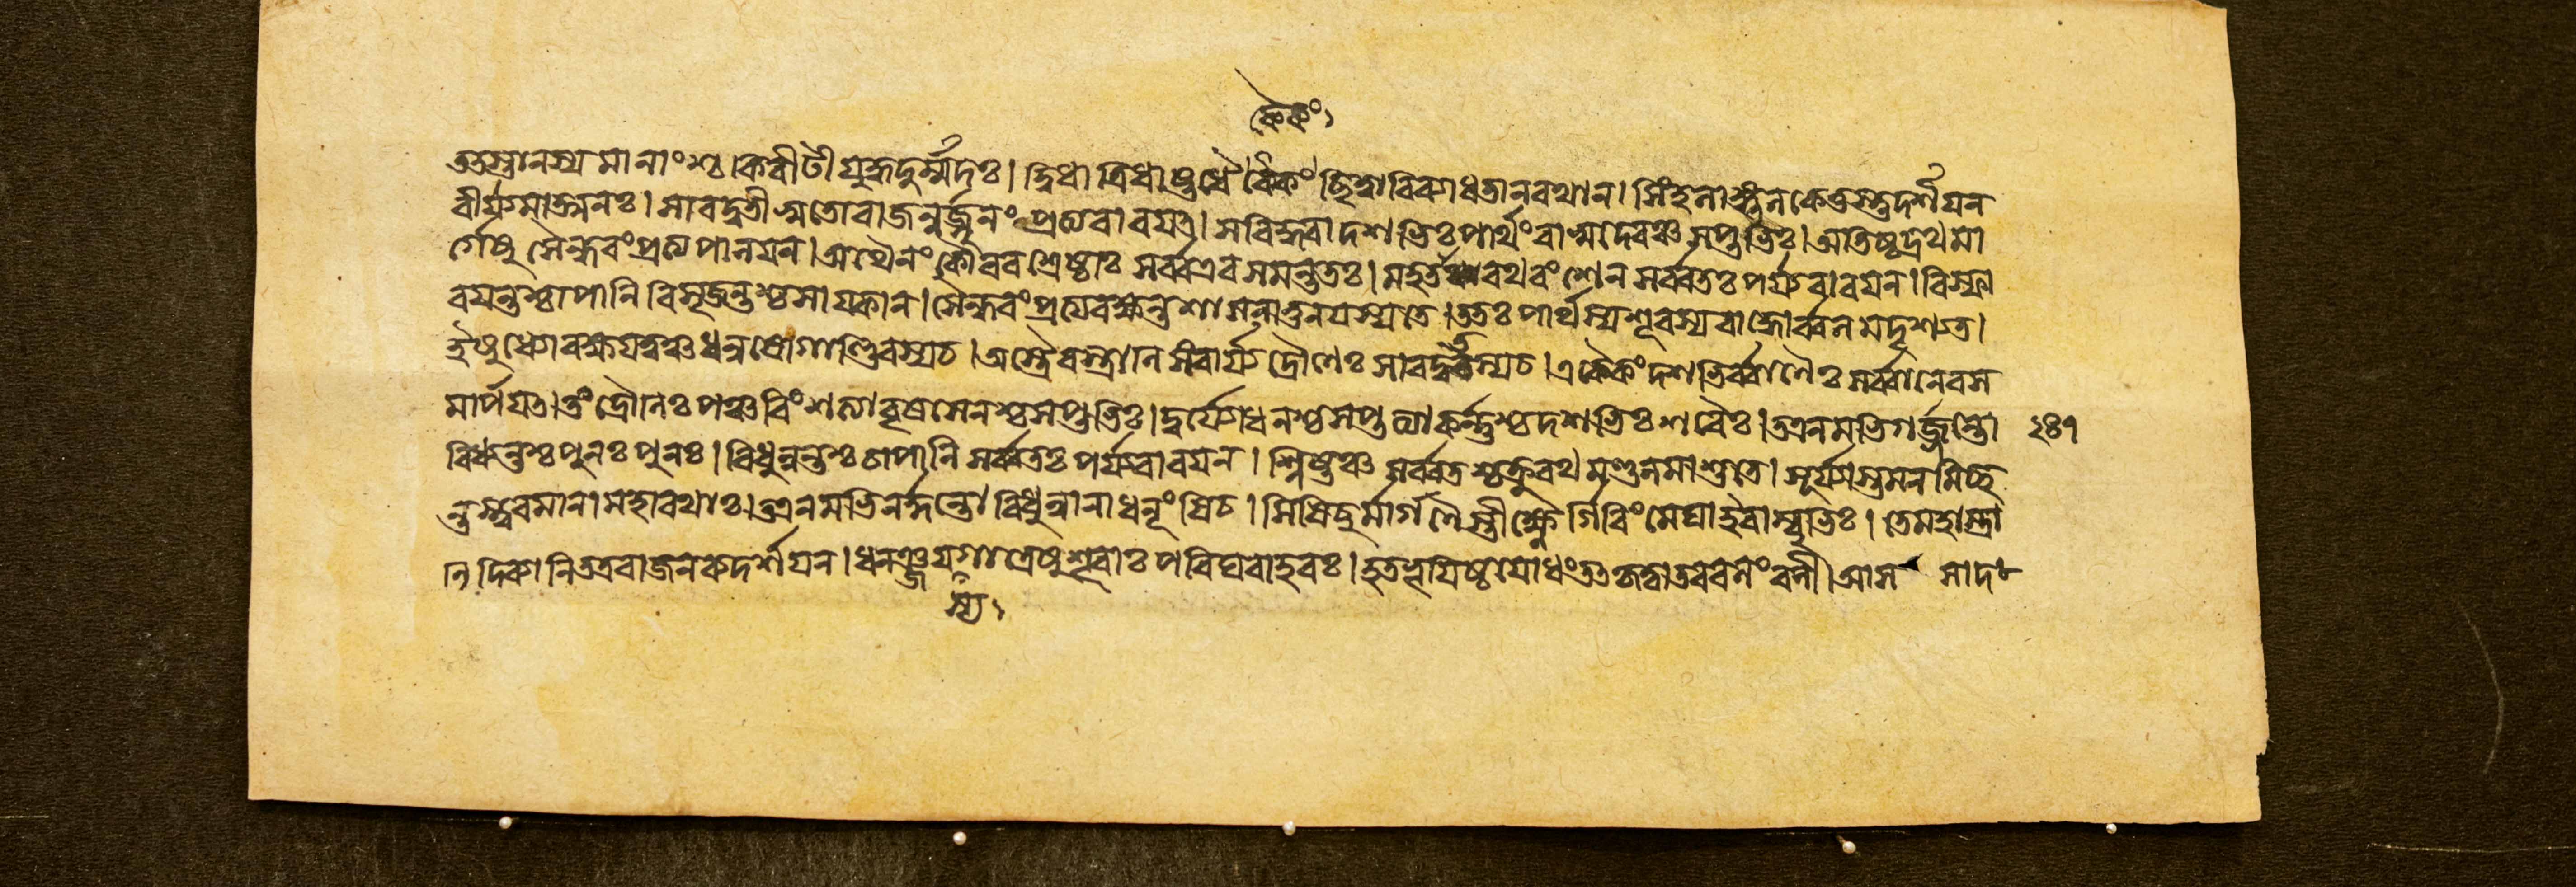 কৈকং১
তস্তানস্যমানাংশ্চ কিরীটী যুদ্ধদুর্ম্মদঃ। দ্বিধা ত্রিধাষ্টধৈ কৈকং ছিত্ত্বা বিব্যাধ তান রথান। সিংহলাঙ্গূলকেতুস্তু দর্শয়ন
বীর্য্যমাত্মনঃ। শারদ্বতীসুতো রাজন্নর্জ্জুনং প্রত্যবারয়ত্। স বিদ্ধ্বা দশভিঃ পার্থং বাসুদেবঞ্চ সপ্তভিঃ। অতিষ্ঠদ্রথমা
র্গেষু সৈন্ধবং প্রত্যপালয়ন। অথৈনং কৌরবশ্রেষ্ঠাঃ সর্ব্ব এব সমন্ততঃ। মহতা রথবংশেন সর্ব্বতঃ পর্য্যবারয়ন। বিস্ফা
রয়ন্তশ্চাপানি বিসৃজন্তশ্চ সায়কান। সৈন্ধবং প্রত্যরক্ষন্ত শাসনাত্তনয়স্য তে। ততঃ পার্থস্য শূরস্য বাহ্বোর্ব্বলমদৃশ্যত।
ইষূণামক্ষয়ত্বঞ্চ ধনুষো গাণ্ডিবস্য চ। অস্ত্রৈরস্ত্রাণি সংবার্য্য দ্রৌণেঃ শারদ্বতস্য চ। একৈকং দশভির্ব্বাণৈঃ সর্ব্বানেব স
মার্পয়ত্। তং দ্রৌণিঃ পঞ্চবিংশত্যা বৃষসেনশ্চ সপ্তভিঃ। দুর্য্যোধনশ্চ সপ্তত্যা কর্ন্নশ্চ দশভিঃ শরৈঃ। ত এনমভিগর্জ্জন্তো ২৪১
বিধ্যন্তশ্চ পুনঃ পুনঃ। বিধুন্বন্তশ্চ চাপানি সর্ব্বতঃ পর্য্যবারয়ন। শ্লিষ্টঞ্চ সর্ব্বতশ্চক্রু রথমণ্ডলমাশু তে। সূর্য্যাস্তমনমিচ্ছ
ন্তস্ত্বরমানা মহারথাঃ। ত এনমভিনর্দ্দন্তো বিধুন্বানা ধনূংষি চ। সিষিচুর্মার্গণৈস্তীক্ষ্ণৈর্গিরিং মেঘা ইবাম্বুভিঃ। তে মহাস্ত্রা
নি দিব্যানি তত্র রাজন ব্যদর্শয়ন। ধনঞ্জয় গাত্রেষু শূরাঃ পরিঘবাহবঃ। হতভূয়িষ্ঠযোধং তত্ কৃত্বা তব বলং বলী। আস সাদ
স্য১